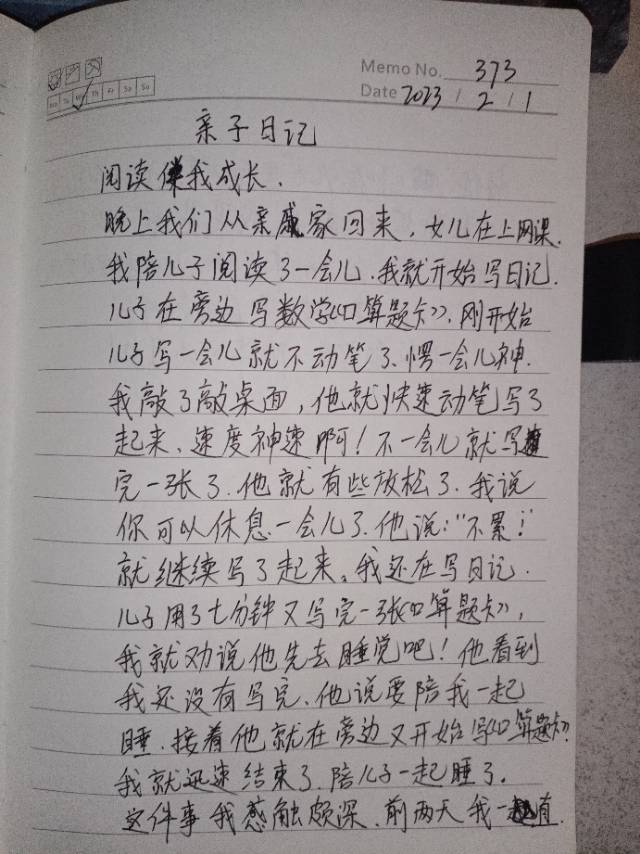 Memo No. 373
Mo Tu We Th Fr Sa Su
Date 2023 / 2 / 1
亲子日记
阅读伴我成长.
晚上我们从亲戚家回来，女儿在上网课.
我陪儿子阅读了一会儿.我就开始写日记.
儿子在旁边写数学《口算题卡》.刚开始
儿子写一会儿就不动笔了、愣一会儿神.
我敲了敲桌面，他就快速动笔写了
起来、速度神速啊！不一会儿就写
完一张了.他就有些放松了.我说
你可以休息一会儿了.他说："不累！"
就继续写了起来。我还在写日记.
儿子用了七分钟又写完一张《口算题卡》，
我就劝说他先去睡觉吧！他看到
我还没有写完、他说要陪我一起
睡.接着他就在旁边又开始写《口算题卡》.
我就迅速结束了.陪儿子一起睡了.
这件事我感触颇深.前两天我一直